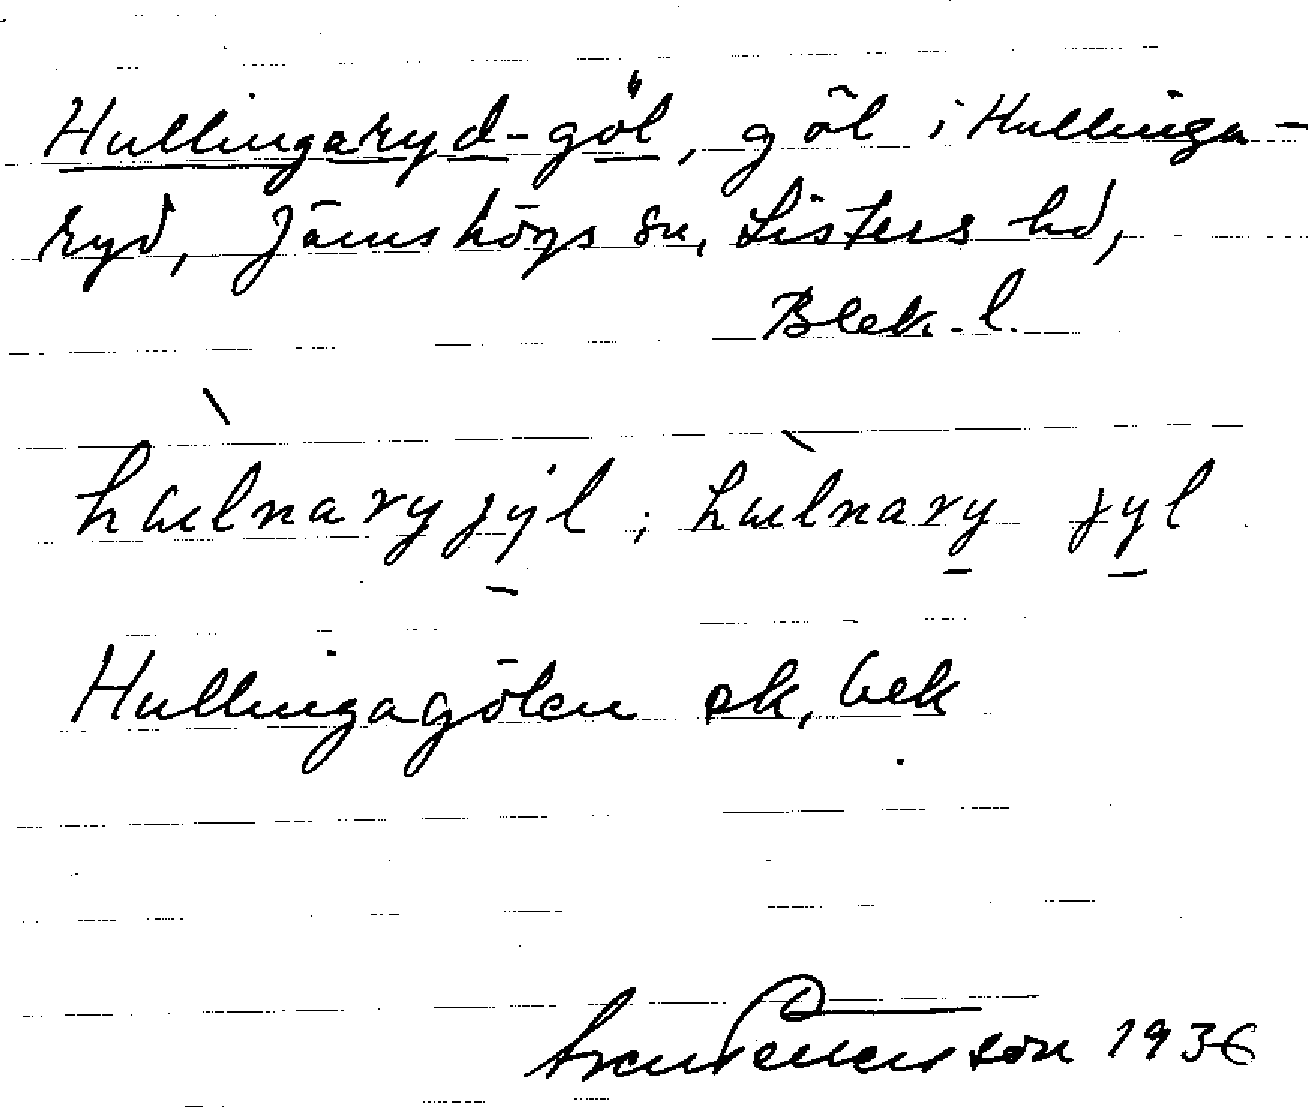 Hullingaryd-göl, göl i Hullinga-
ryd, Jämshögs sn, Listers hd,
Blek. l.
hælnaryjyl; hælnary jyl
Hullingagölen ek, bek
1936